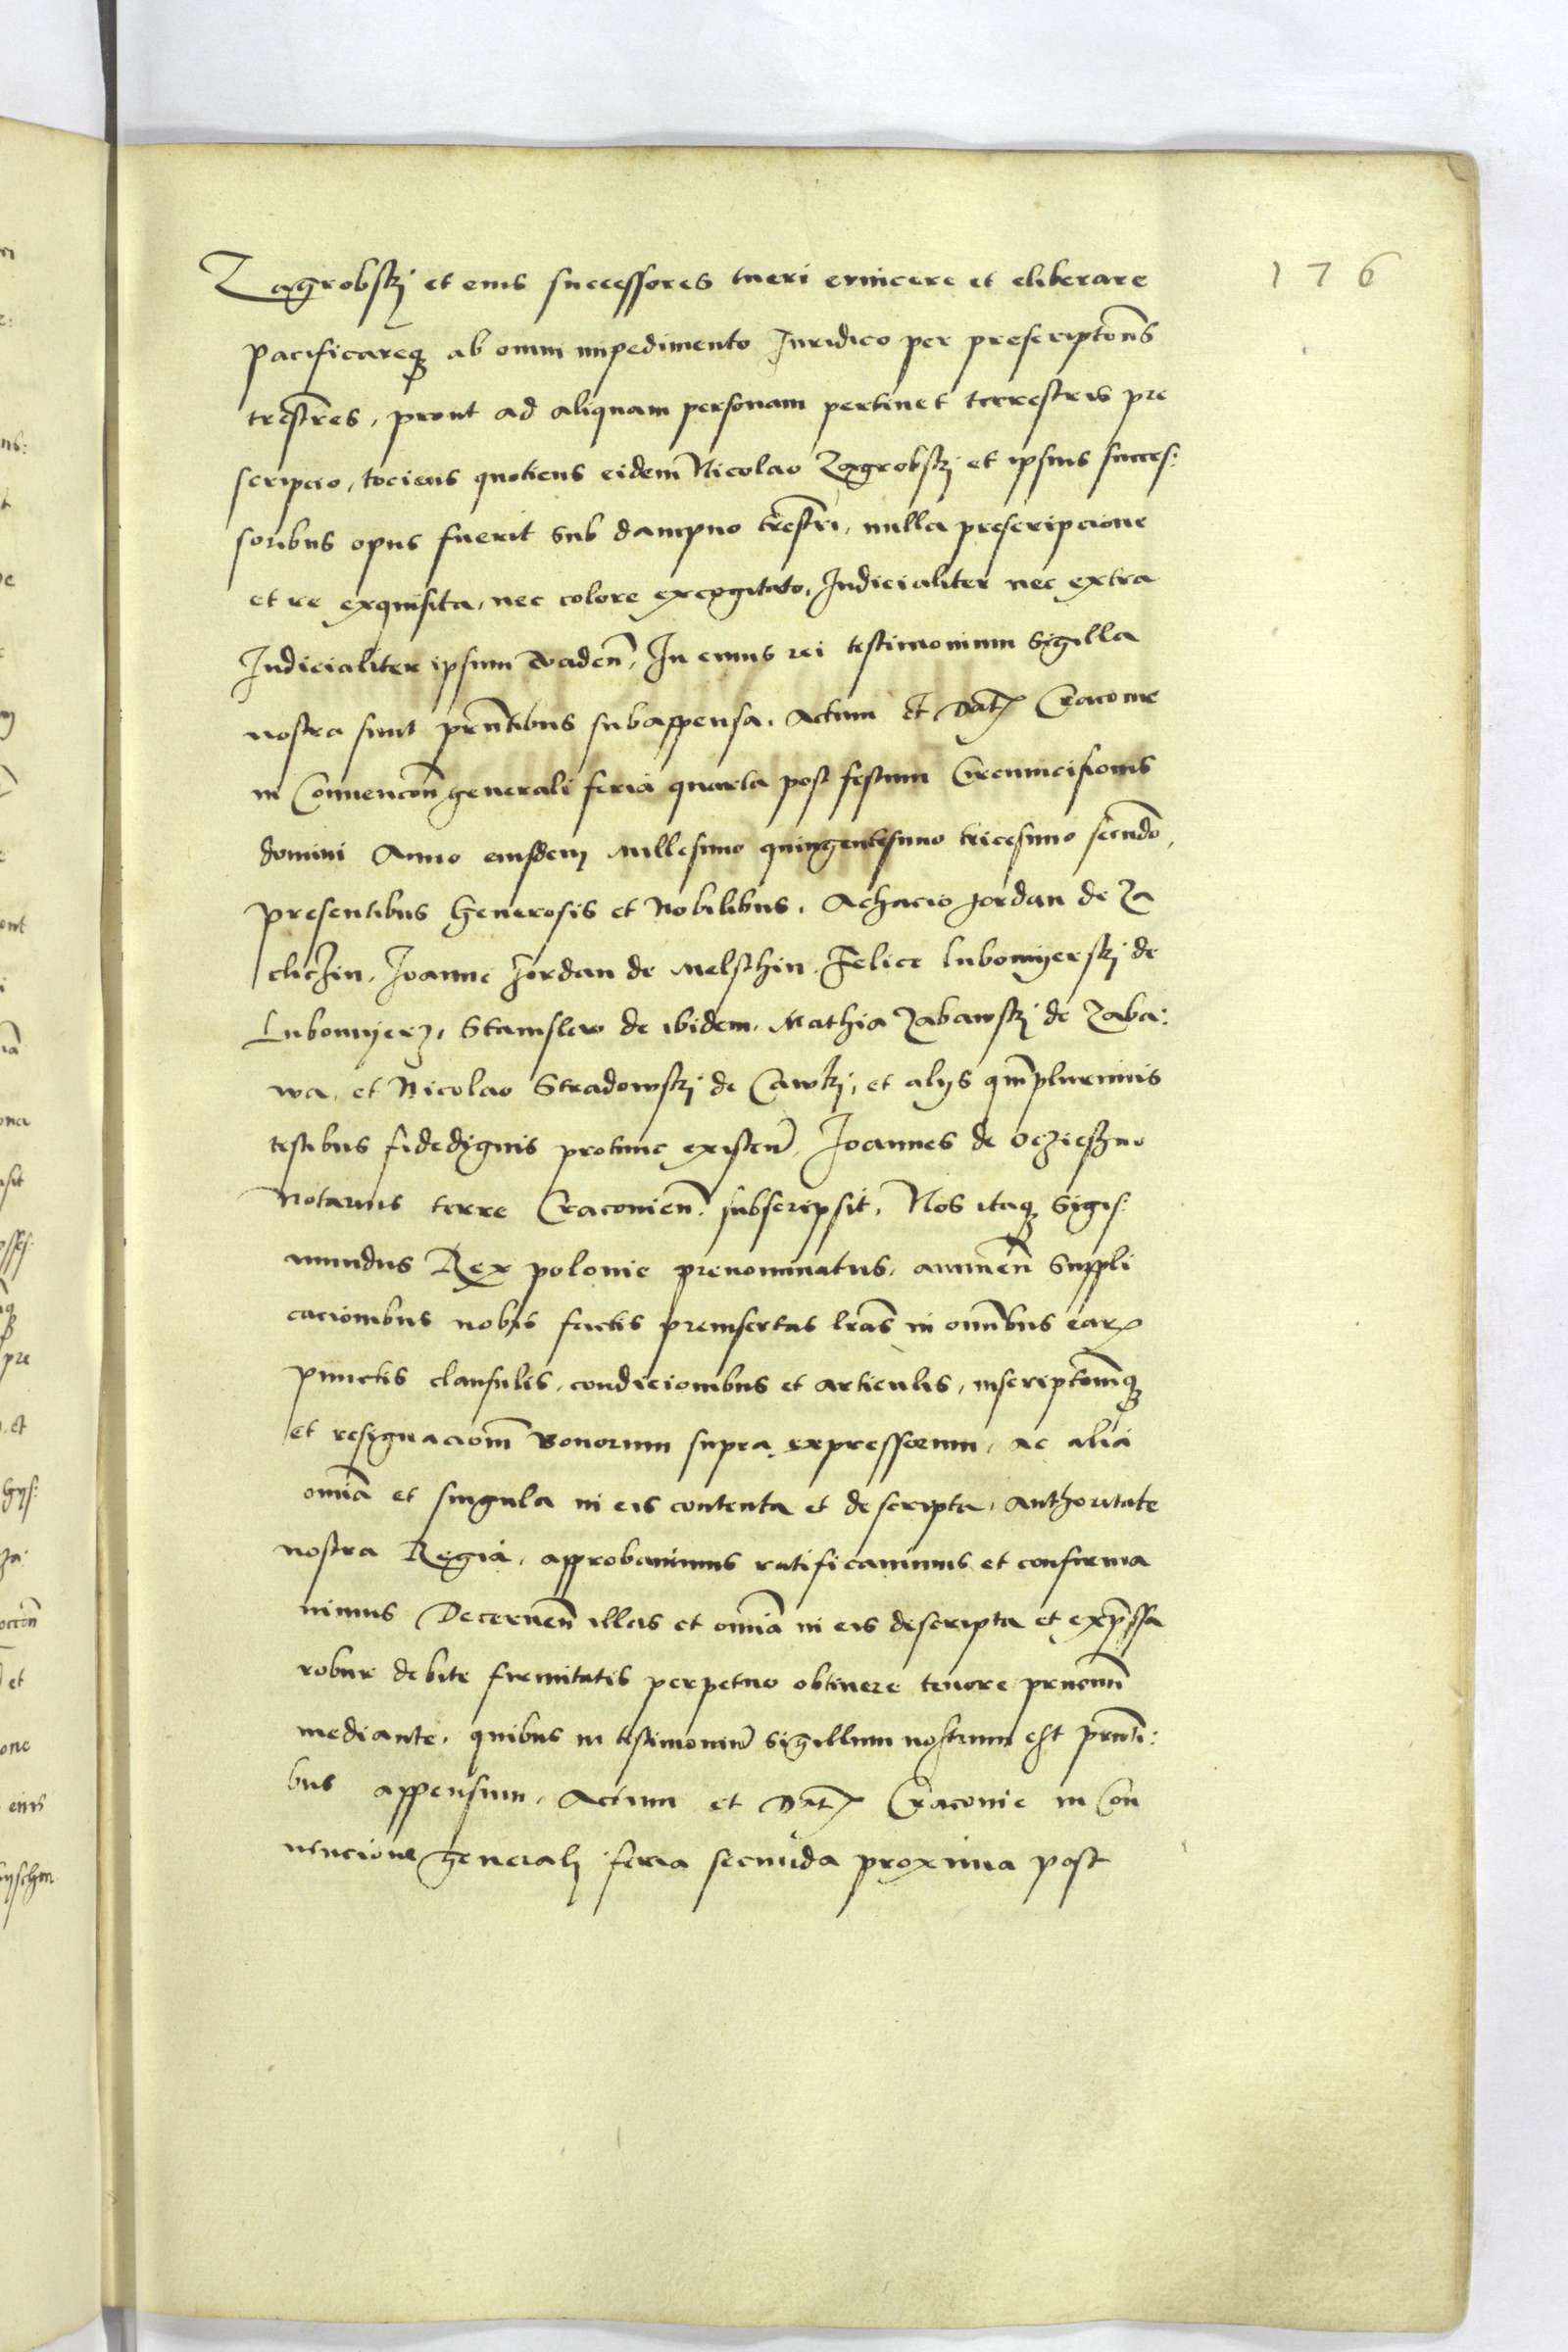 176
Zagrobskj et eius successores tueri evincere et eliberare
pacificareq; ab omni impedimento Iuridico per prescriptões
trestres, prout ad aliquam personam pertinet terrestris pre
scripcio, tociens quotiens eidem Nicolao Zagrobskj et ipsius succes:
soribus opus fuerit sub dampno trestri, nulla prescripcione
et re exquisita, nec colore excogitato, Iudicialiter nec extra
Iudicialiter ipsum evadeñ, In cuius rei testimonium Sigilla
nostra sunt prñtibus subappensa. Actum et Dat Cracovie
in Convencõe generali feria quarta post festum Circumcisionis
domini Anno eiusdem millesimo quingentesimo tricesimo secũdo,
presentibus Generosis et Nobilibus, Achacio Jordan de Za
cliczin, Joanne Jordan de Melschin, Felice Lubomyerskj de
Lubomyerz, Stanislao de ibidem, Mathia Zabawskj de Zaba:
wa, et Nicolao Stradowskj de Cawkj, et alijs qm̃plurimis
testibus fidedignis protunc existeñ, Joannes de Oczieszno
Notarius terre Cracovieñ. subscripsit, Nos itaq; Sigis:
mundus Rex polonie prenominatus, annueñ suppli
cacionibus nobis factis preinsertas lras in omĩbus ear
punctis clausulis, condicionibus et articulis, inscriptionẽq;
et resignacionẽ Bonorum supra expressorum, ac alia
omĩa et singula in eis contenta et descripta, Authoritate
nostra Regia, approbavimus ratificavimus et confirma
vimus Decerneñ illas et omĩa in eis descripta et exp̃ssa
robur debite firmitatis perpetuo obtinere tenore prñciũ
mediante, quibus in testimoniũ Sigillum nostrum est prñti:
bus appensum, Actum et Dat Cracovie in Con
vencione generalj feria secunda proxima post